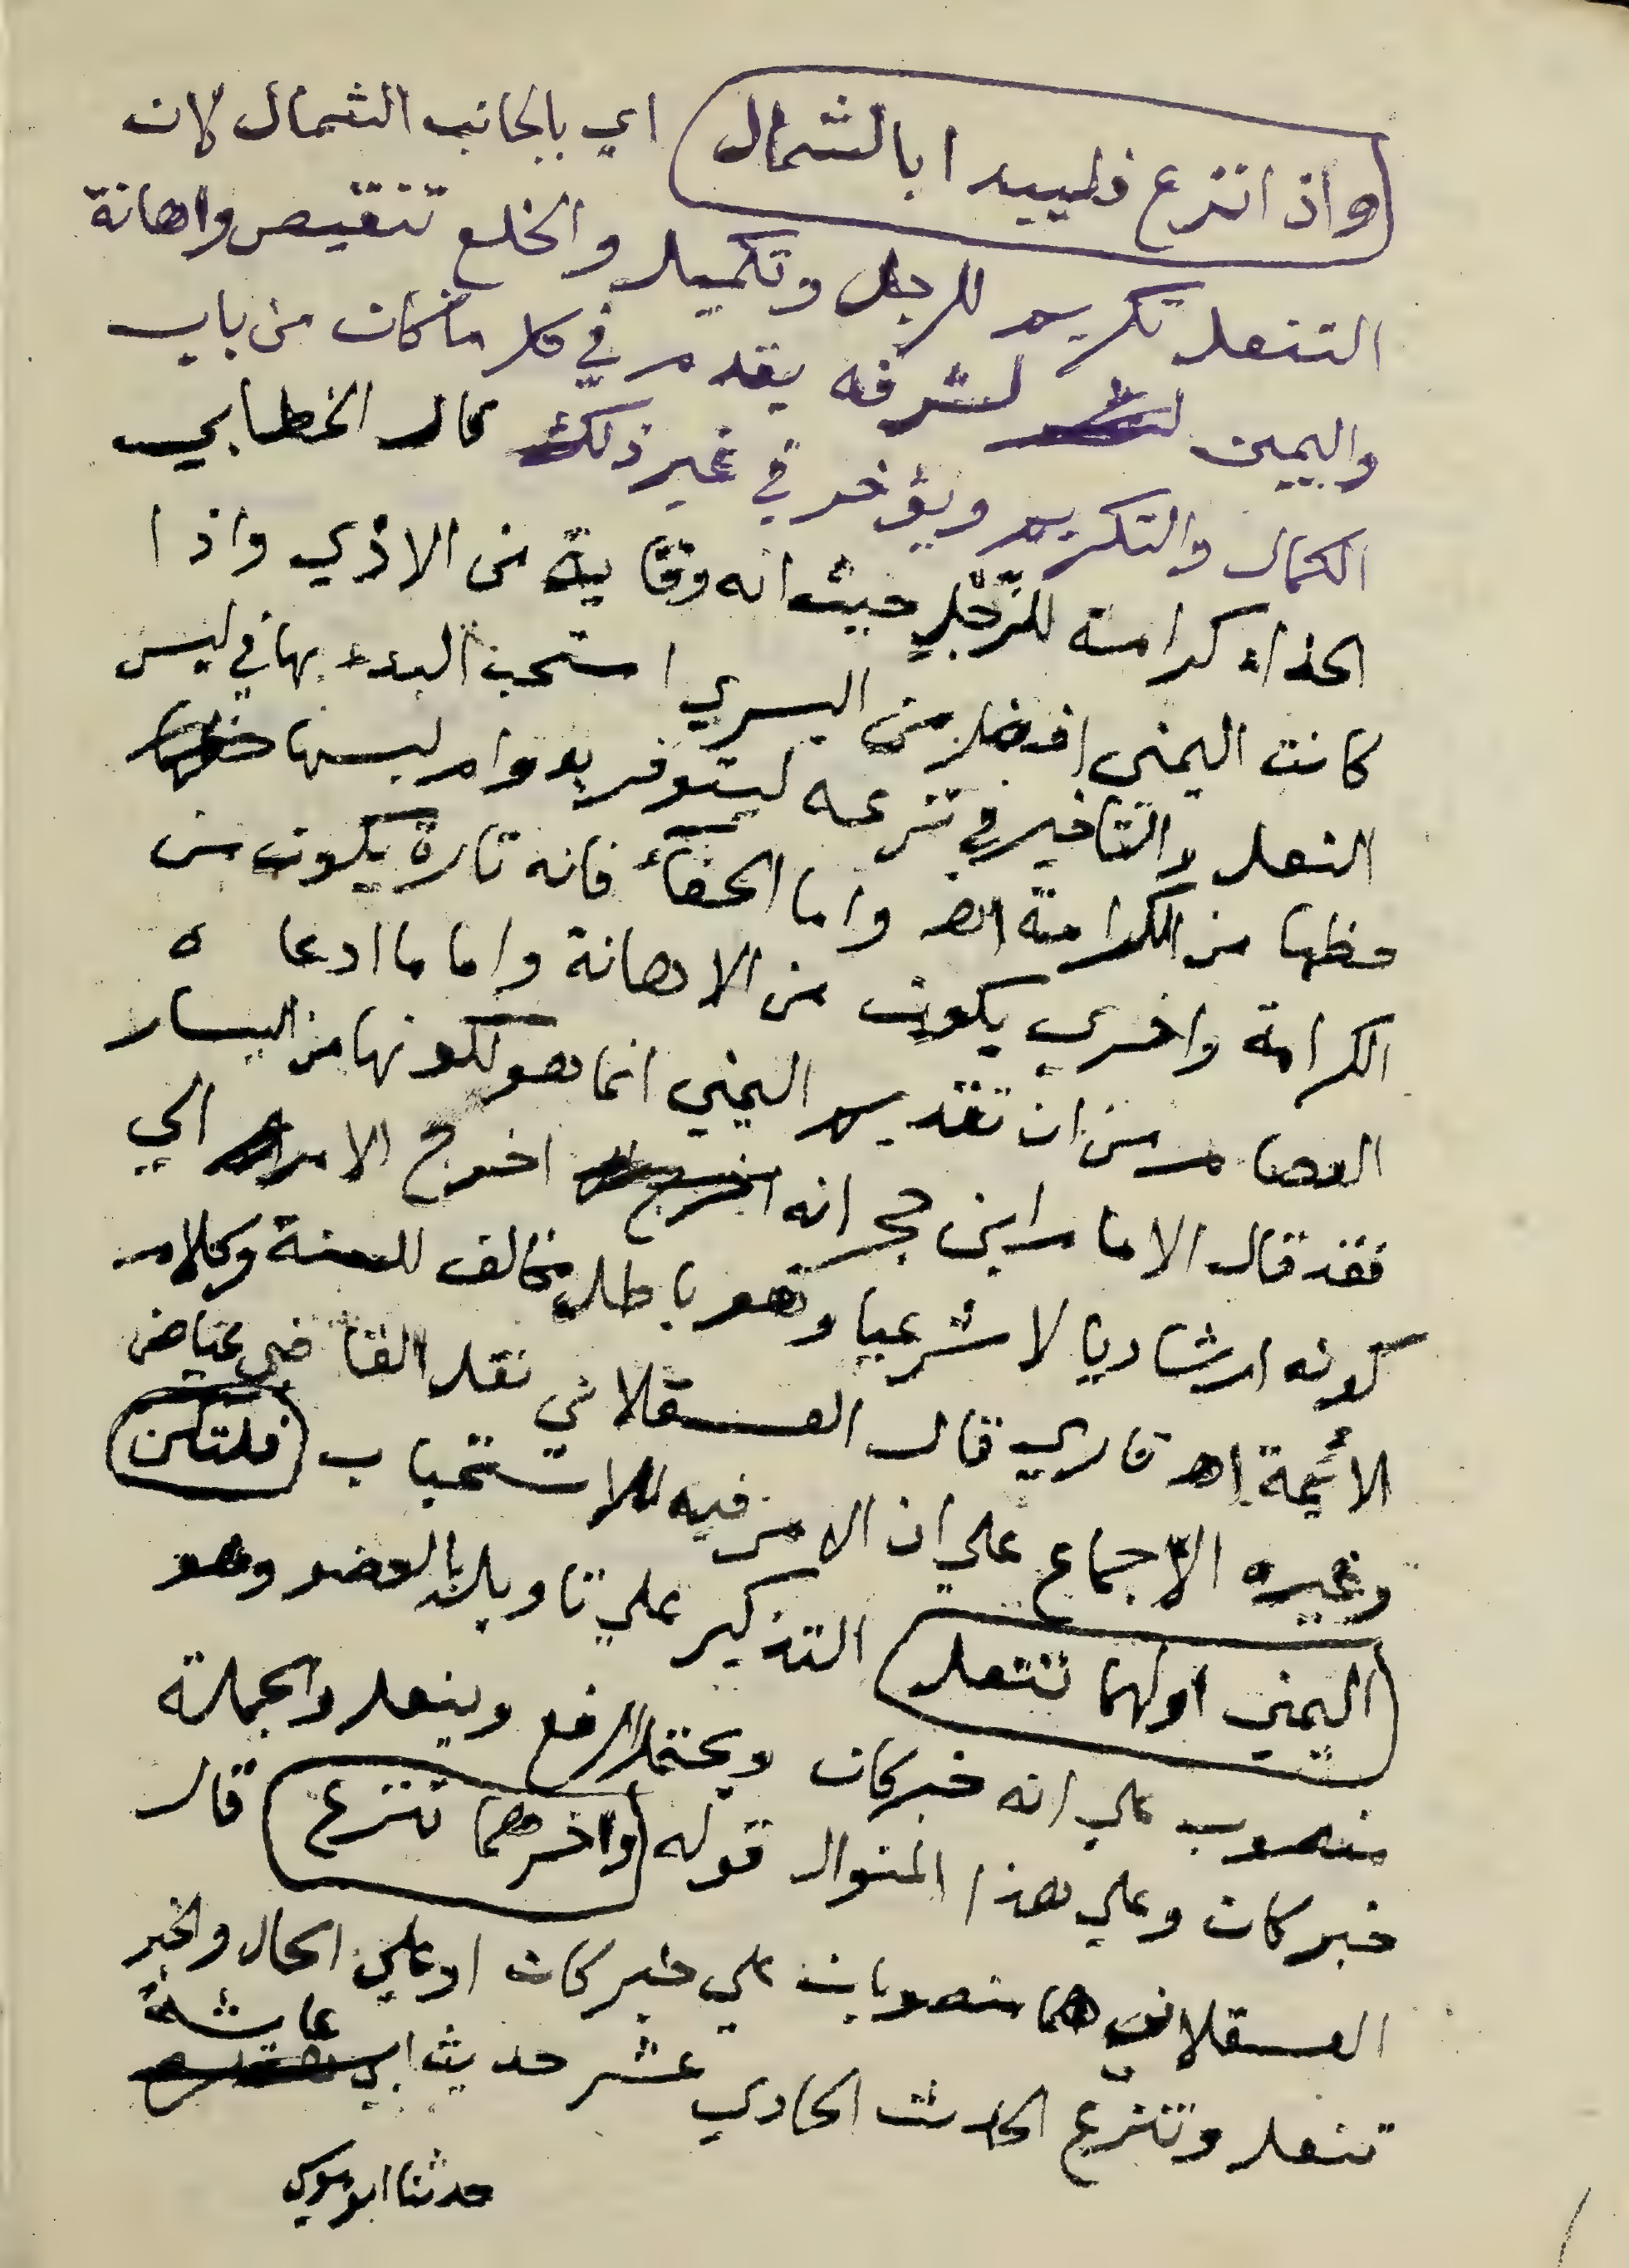 واذا نزع فليبدا بالشمال اي بالجانب الشمال لان
التنعل تكريم للرجل وتكميل والخلع تنقيص واهانة
واليمين لشرفه يقدم في كل ما كان من باب
الكمال والتكريم ويؤخر في غير ذلك قال الخطابي
الحذاء كرامة للرّجْلِ حيث انه وقاية من الاذي واذا
كانت اليمني افضل من اليسري استحب البدء بها في لبس
النعل والتاخير في نزعه ليتوفر بدوام لبسها
حظها من الكرامة اهـ واما الحفاء فانه تارة يكون من
الكرامة واخري يكون من الاهانة واما ما ادعاه
العصام من ان تقديم اليمني انما هو لكونها من اليسار
فقد قال الامام ابن حجر انه اخرج الامر الي
كونه ارشاديا لا شرعيا وهو باطل مخالف للسنة وكلام
الأئمة اهـ قاري قال العسقلاني نقل القاضي عياض
وغيره الاجماع علي ان الامر فيه للاستحباب فلتكن
اليمني اولهما تنتعل التذكير علي تاويل بالعضو وهو
منصوب علي انه خبر كان ويحتمل الرفع وينعل والجملة
خبر كان وعلي هذا المنوال قوله واخرهما تنزع قال
العسقلاني هما منصوبان علي خبر كان او علي الحال والخبر
تنعل وتنزع الحدث الحادي عشر حديث ابي عايشة
حدثنا ابو موسي